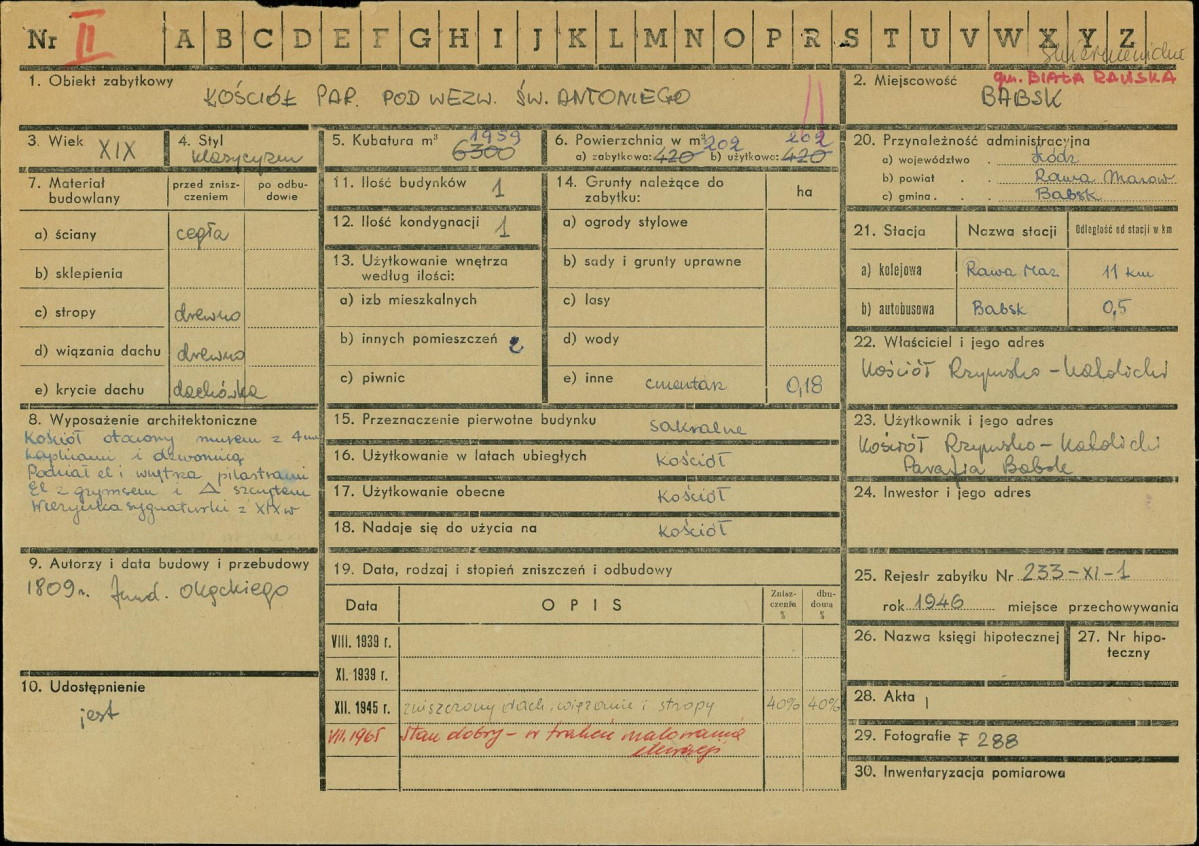 Nr II A B C D E F G H I J K L M N O P R S T U V W X Y Z
Skierniewice
1. Obiekt zabytkowy
KOŚCIÓŁ PAR. POD WEZW. ŚW. ANTONIEGO
2. Miejscowość
gm. BIAŁA RAWSKA
BABSK
3. Wiek XIX
4. Styl
klasycyzm
5. Kubatura m³
1959
6300
6. Powierzchnia w m²
a) zabytkowa: 420 202 b) użytkowa: 420 202
7. Materiał budowlany
przed zniszczeniem
po odbudowie
a) ściany cegła
b) sklepienia
c) stropy drewno
d) wiązania dachu drewno
e) krycie dachu dachówka
8. Wyposażenie architektoniczne
Kościół otoczony murem z 4ma
kaplicami i dzwonnicą
Podział el i wnętrza pilastrami
El z gzymsem i △ szczytem
Wieżyczka sygnaturki z XIX w
9. Autorzy i data budowy i przebudowy
1809 r. fund. Okęckiego
10. Udostępnienie
jest
11. Ilość budynków 1
12. Ilość kondygnacji 1
13. Użytkowanie wnętrza
według ilości:
a) izb mieszkalnych
b) innych pomieszczeń 2
c) piwnic
14. Grunty należące do
zabytku:
ha
a) ogrody stylowe
b) sady i grunty uprawne
c) lasy
d) wody
e) inne cmentarz 0,18
15. Przeznaczenie pierwotne budynku sakralne
16. Użytkowanie w latach ubiegłych kościół
17. Użytkowanie obecne kościół
18. Nadaje się do użycia na kościół
19. Data, rodzaj i stopień zniszczeń i odbudowy
Data OPIS Zniszczenia % dbudowa %
VIII. 1939 r.
XI. 1939 r.
XII. 1945 r. zniszczony dach, wiązanie i stropy 40% 40%
VII. 1965 Stan dobry – w trakcie malowania
elewacji
20. Przynależność administracyjna
a) województwo . Łódź
b) powiat . . Rawa Mazow
c) gmina . . . Babsk
21. Stacja Nazwa stacji Odległość od stacji w km
a) kolejowa Rawa Maz 11 km
b) autobusowa Babsk 0,5
22. Właściciel i jego adres
Kościół Rzymsko-Katolicki
23. Użytkownik i jego adres
Kościół Rzymsko-Katolicki
Parafia Babsk
24. Inwestor i jego adres
25. Rejestr zabytku Nr 233-XI-1
rok 1946 miejsce przechowywania
26. Nazwa księgi hipotecznej
27. Nr hipoteczny
28. Akta 1
29. Fotografie F 288
30. Inwentaryzacja pomiarowa